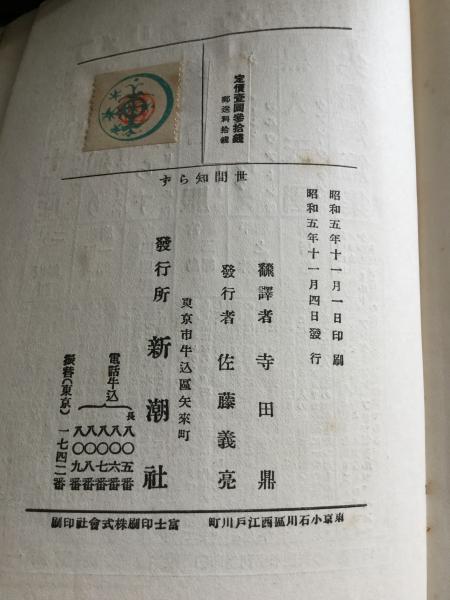 定價壹圓參拾錢
郵送料拾錢
世間知らず
昭和五年十一月一日印刷
昭和五年十一月四日發行
飜譯者 寺田鼎
發行者 佐藤義亮
東京市牛込區矢來町
發行所 新潮社
電話牛込
長八〇五番
八〇六番
八〇七番
八〇八番
八〇九番
振替(東京)一七四二番
東京小石川區西江戸川町 富士印刷株式會社印刷